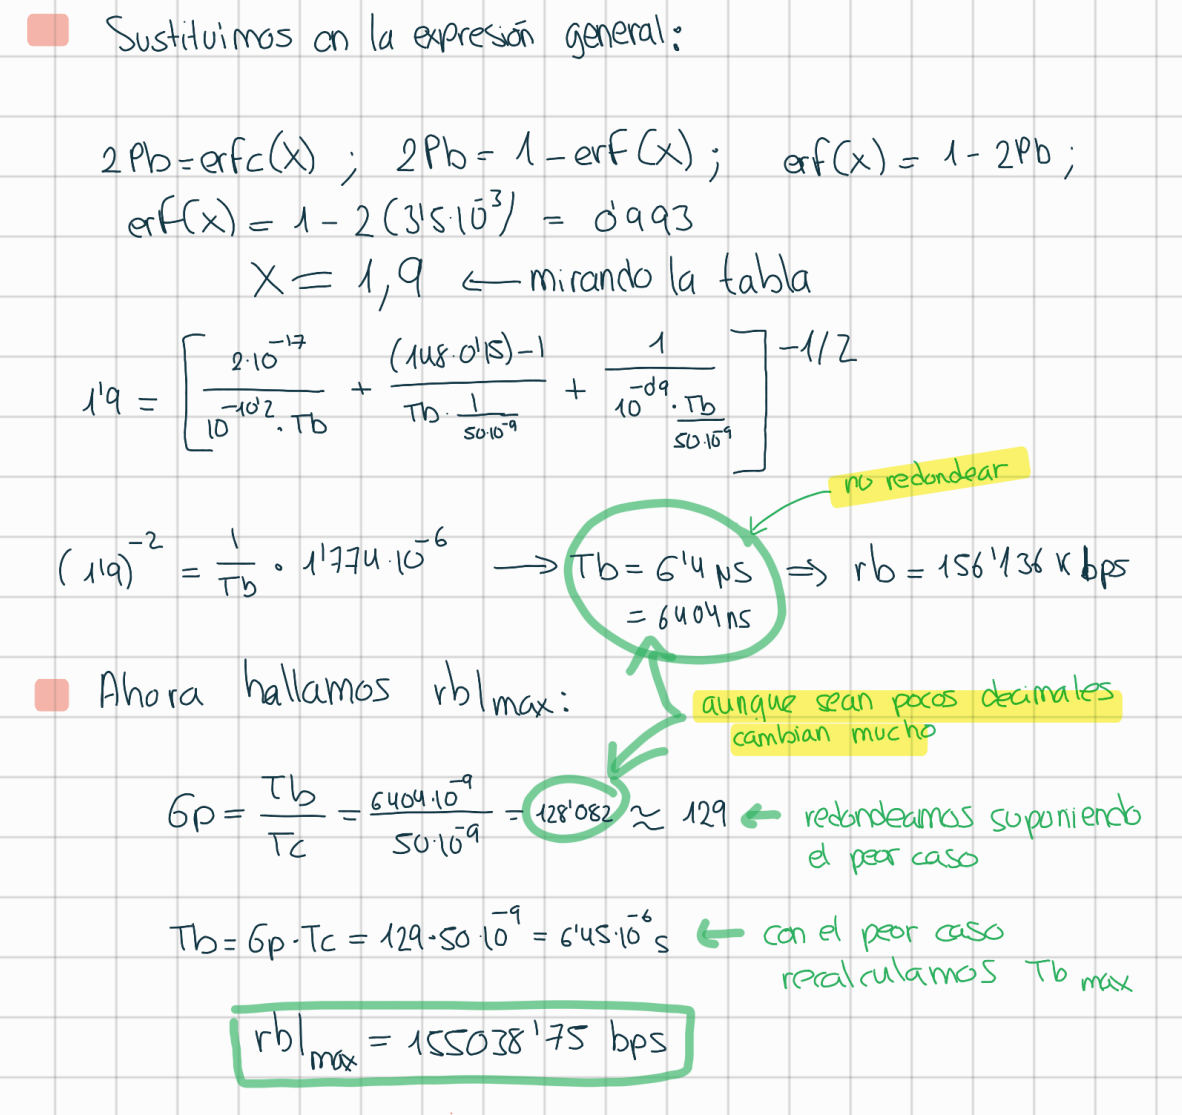 Sustituimos en la expresión general:
2Pb = erfc(x) ; 2Pb = 1 - erf(x) ; erf(x) = 1 - 2Pb ;
erf(x) = 1 - 2(3'5·10^-3) = 0'993
x = 1,9 ← mirando la tabla
1'9 = [ 2·10^-17 / (10^-10'2 · Tb) + ((148·0'15) - 1) / (Tb · 1/(50·10^-9)) + 1 / (10^-0'9 · Tb/(50·10^-9)) ]^-1/2
no redondear
(1'9)^-2 = 1/Tb · 1'774·10^-6 → Tb = 6'4 μs ⇒ rb = 156'136 Kbps
= 6404 ns
Ahora hallamos rb|max:
aunque sean pocos decimales
cambian mucho
Gp = Tb/Tc = 6404·10^-9 / 50·10^-9 = 128'082 ≈ 129 ← redondeamos suponiendo
el peor caso
Tb = Gp·Tc = 129·50·10^-9 = 6'45·10^-6 s ← con el peor caso
recalculamos Tb max
rb|max = 155038'75 bps